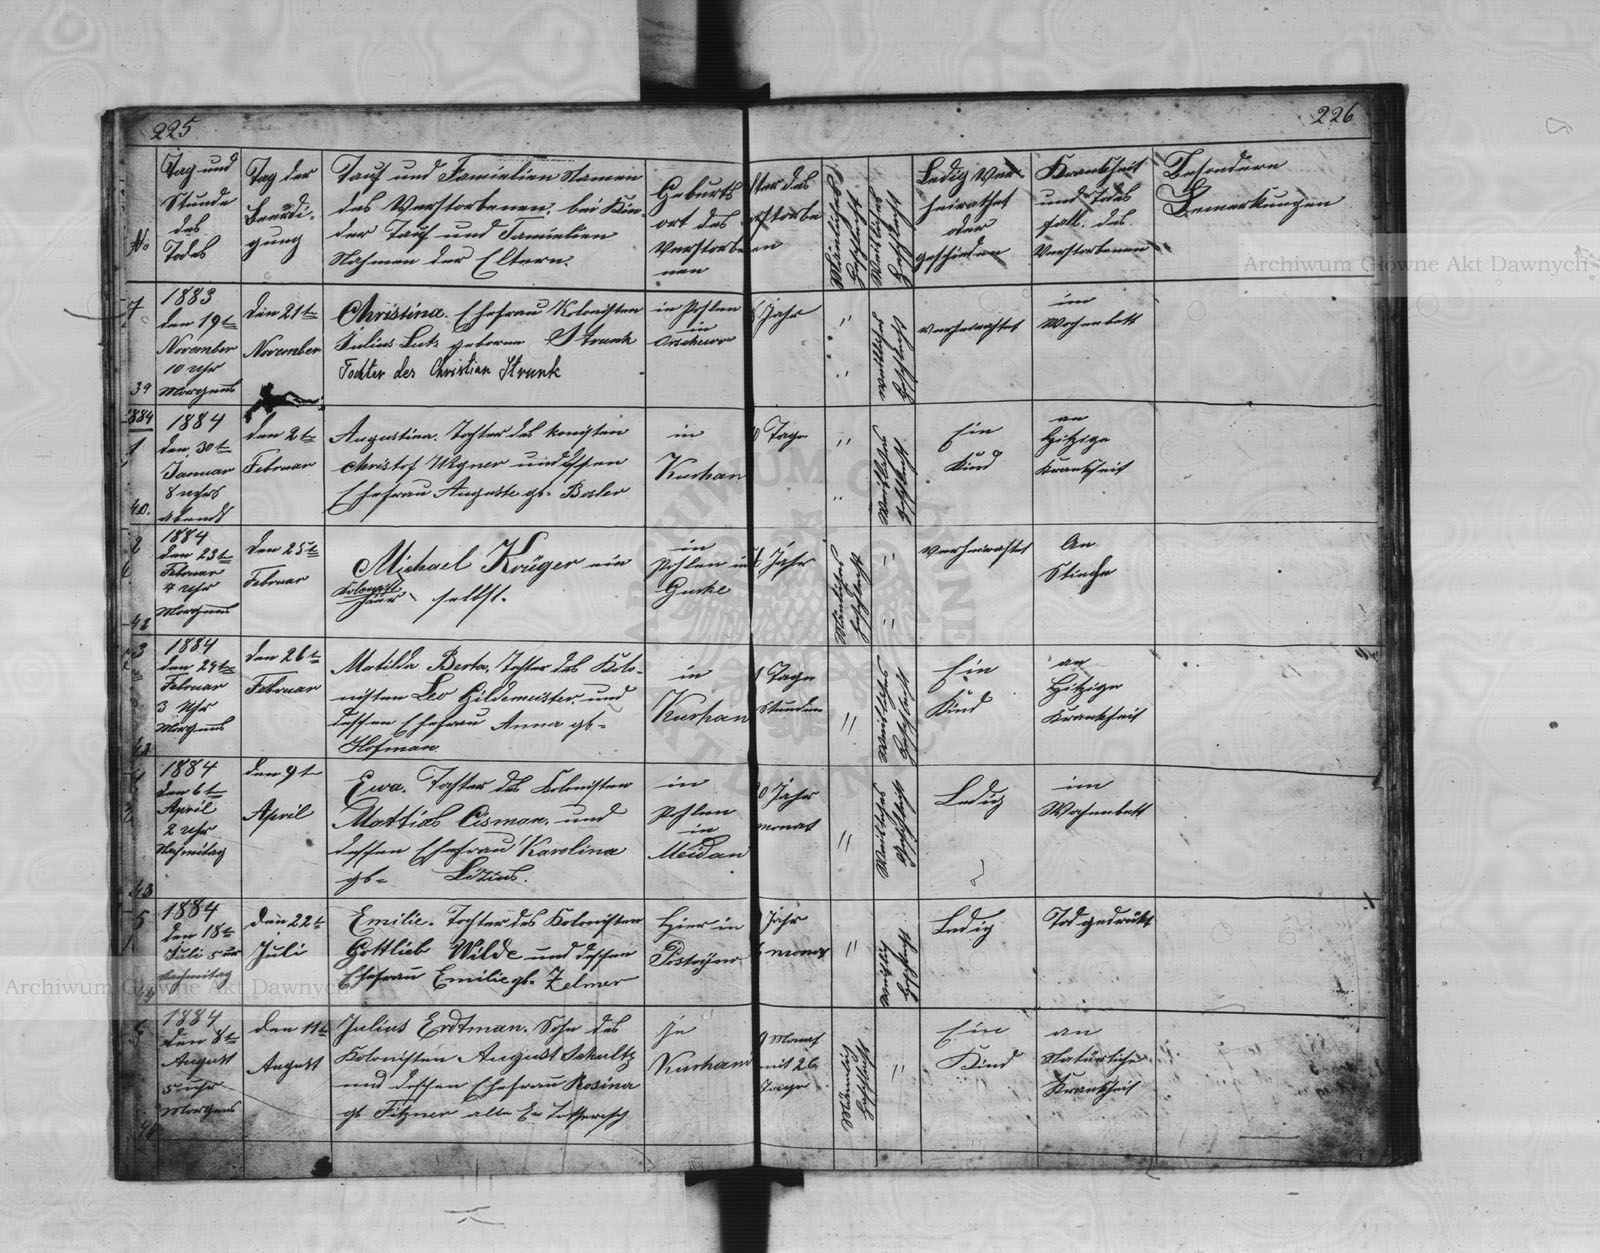 225
226
No
Tag und
Stunde
des
Todes
Tag der
Beerdi-
gung
Tauf und Famielien Namen
des Verstorbenen, bei Kin-
der Tauf und Famielien
Nahmen der Eltern.
Geburts
ort des
Verstorbe
nen
ter des
storbe
en
Mänliches
Geschlecht
Weibliches
Geschlecht
Ledig Ver-
heirathet
oder
geschieden
Krankheit
und Todes
fall. des
Verstorbenen
Besondere
Bemerkungen
7
39
1883
den 19t
November
10 Uhr
Morgens
den 21t
November
Christina. Ehefrau Kolonisten
Julius Lutz geborene Strunk
Tochter des Christian Strunk
in Pohlen
in
Jahr
Weibliches
Geschlecht
verheirathet
im
Wochenbett
1884
1
40.
1884
den 30t
Januar
8 uhr
abends
den 2t
Februar
Augustina. Tochter des
Christof Wegner und dessen
Ehefrau Auguste gb. Bosler
in
Kurhan
Tage
Weibliches
Geschlecht
Ein
Kind
an
Hitzige
Krankheit
2
42
1884
den 23t
Februar
7 Uhr
Morgens
den 25t
Februar
Michael Krüger ein
Kolonist
hier selbst.
in
Pohlen in
Jahr
Mänliches
Geschlecht
verheirathet
An
Stiche
3
1884
den 24t
Februar
3 Uhr
Morgens
den 26t
Februar
Matilda Berta, Tochter des Kolo-
nisten Leo Gildemeister und
dessen Ehefrau Anna gb-
Hofman.
in
Kurhan
Tage
Stunden
Weibliches
Geschlecht
Ein
Kind
an
Hitzige
Krankheit
4
43
1884
den 6t
April
2 Uhr
Nachmitag
den 9t
April
Ewa. Tochter des Kolonisten
Mattias Cisman. und
dessen Ehefrau Karolina
gb- Lizius.
in
Pohlen
in
Meidan
Jahr
monat
Weibliches
Geschlecht
Ledig
im
Wochenbett
5
44
1884
den 18t
Juli 5 ur
Nachmitag
den 22t
Juli
Emilie. Tochter des Kolonisten
Gottlieb Wilde und dessen
Ehefrau Emilie gb. Zelmer
Hier in
Jahr
monat
Weiblich
Geschlecht
Ledig
Tod gedrükt
6
1884
den 8t
August
5 uhr
Morgens
den 11t
August
Julius Erdtman. Sohn des
Kolonisten August Schultz
und dessen Ehefrau Rosina
gb Fitzner alle Ev.
in
Kurhan
9 Monat
mit 26
Tage
Mänlich
Geschlecht
Ein
Kind
an
Natürliche
Krankheit
Archiwum Główne Akt Dawnych
Archiwum Główne Akt Dawnych
ARCHIWUM GŁÓWNE AKT DAWNYCH